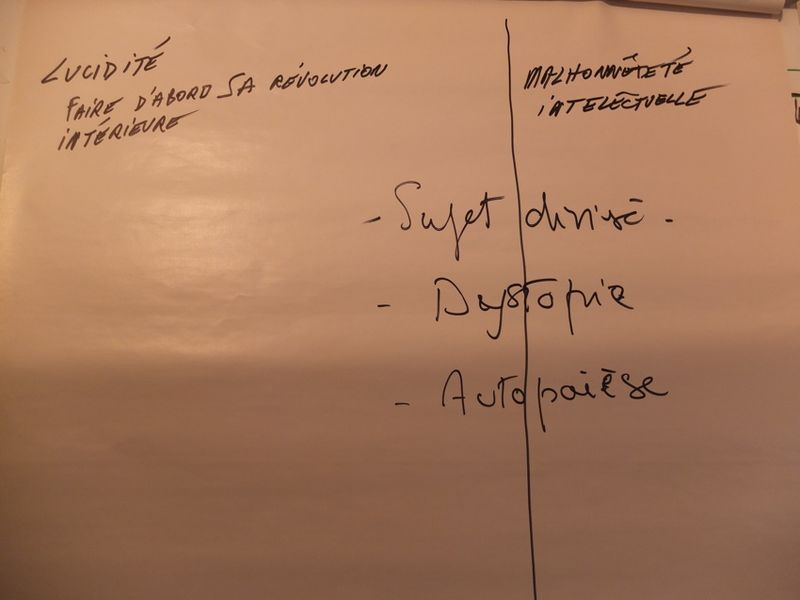 LUCIDITÉ
FAIRE D'ABORD SA RÉVOLUTION
INTÉRIEURE
MALHONNÊTETÉ
INTELECTUELLE
- Sujet divisé -
- Dystopie
- Autopoièse